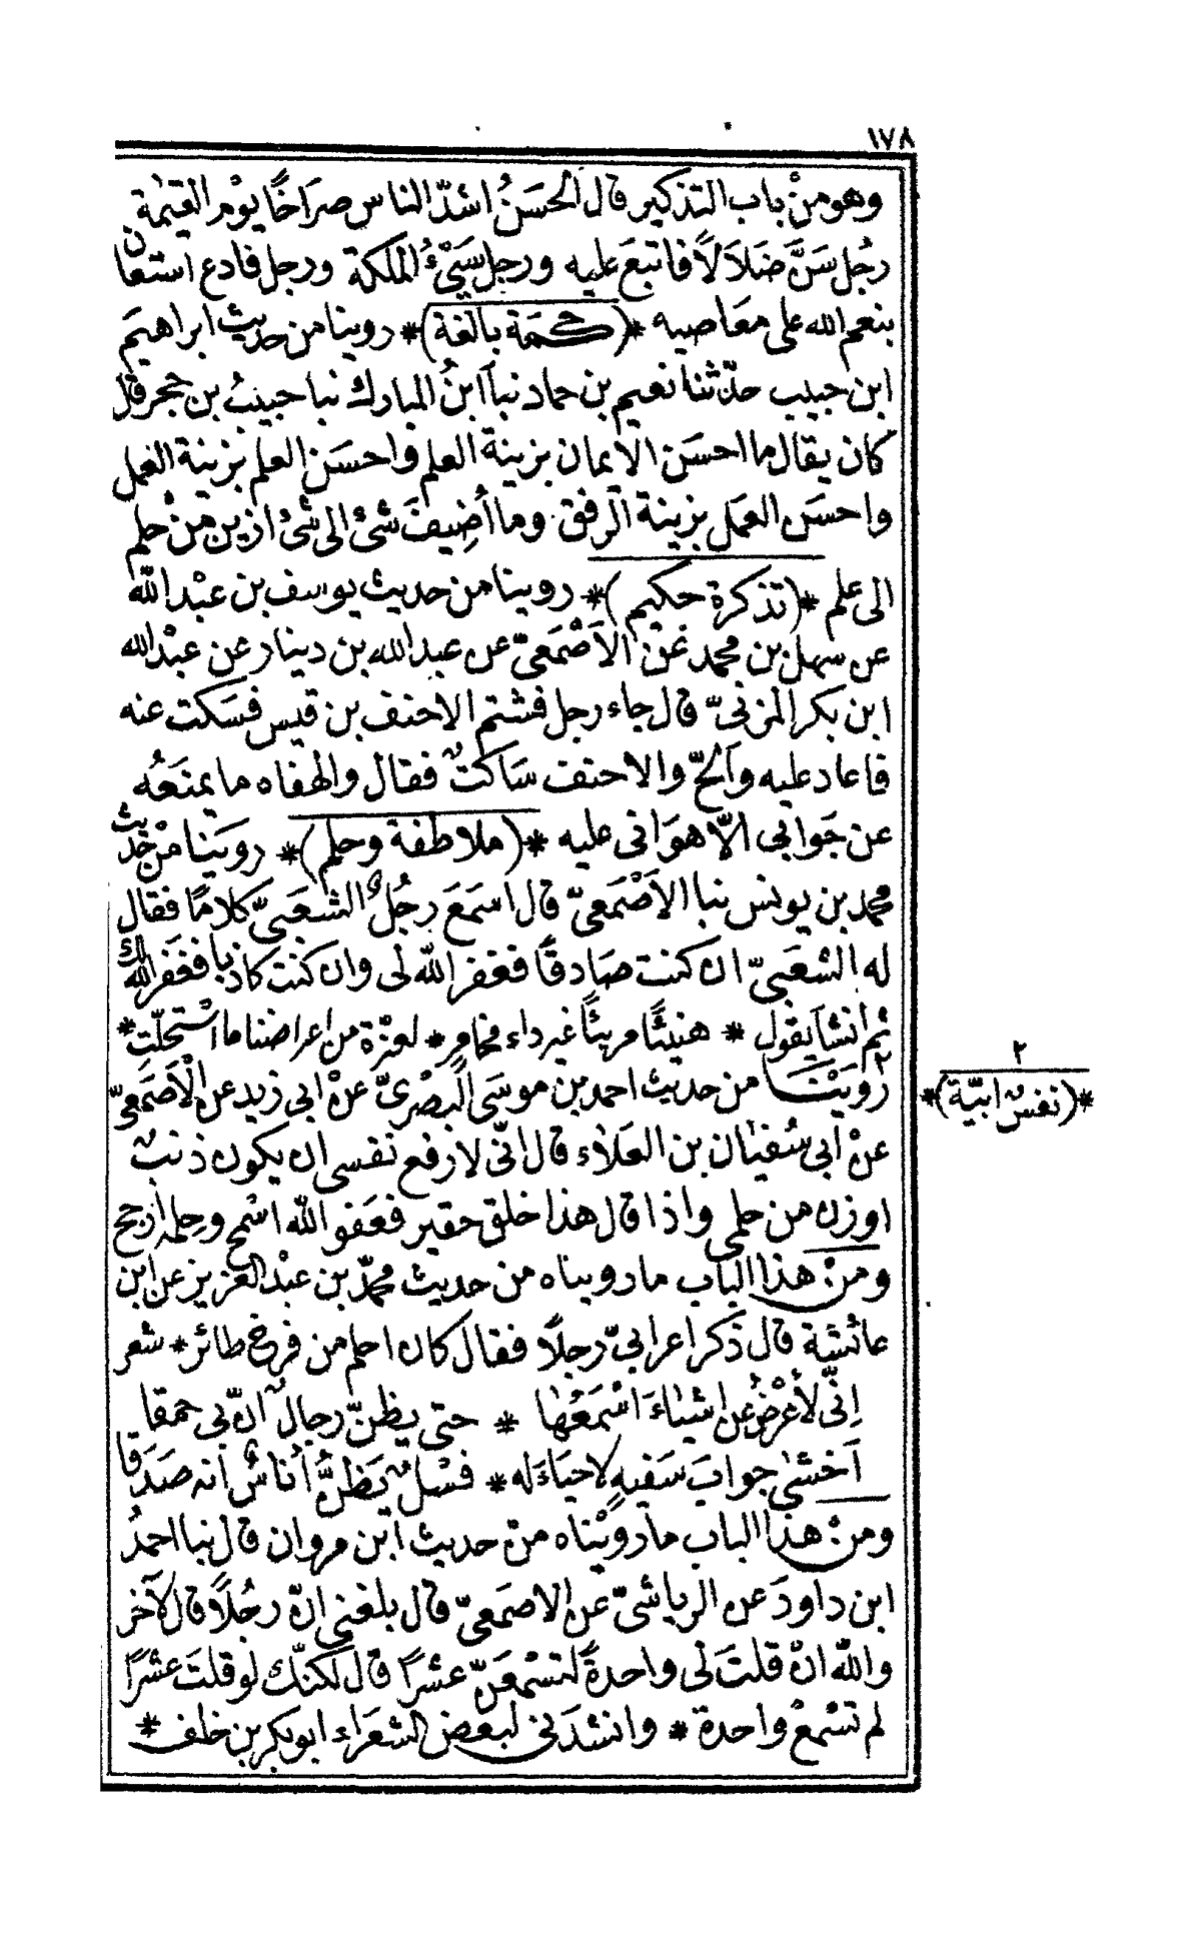 ١٧٨
وهو منْ باب التذكير قال الحسَنُ اشدّ الناس صرَاخًا يوْم القيٰمة
رجُل سَنَّ ضَلاَلاً فاتبعَ عليه ورجل سَيّئُ الملكة ورجل فادع استعان
بنعم الله على معَاصيه *(حكمَة بالغة)* روينا من حديث ابراهيم
ابن حبيب حدّثنا نعيم بن حماد نبأ ابنُ المبارك نبا حبيبُ بن حجر قال
كان يقال ما احسَن الايمان بزينة العلم واحسَن العلم بزينة العمل
واحسَن العمَل بزينة الرفق وما أُضِيفَ شئ الى شئ ازين منْ حلم
الى علم *(تذكرة حكيم)* روينا من حديث يوسف بن عبْد الله
عن سهل بن محمد عن الاَصْمَعىّ عن عبد الله بن دينار عن عبْد الله
ابن بكر المزنىّ قال جاء رجل فشتم الاحنف بن قيس فسَكت عنه
فاعاد عليه وألحّ والاحنف سَاكتٌ فقال والهفاه ما يمنَعُه
عن جَوابى الاّ هوَانى عليه *(ملاطفة وحلم)* رويَنا منْ حديث
محمد بن يونس نبا الاَصْمَعىّ قال اسمَعَ رجُلٌ الشعَبىّ كلامًا فقال
له الشعَبىّ ان كنت صَادقًا فغفر الله لى وان كنت كاذبا فغفر الله لك
ثم انشأ يقول * هنيئًا مريئًا غير داء مخامر * لعزّة من اعراضنا ما استحلّتِ *
٢ رُويَنْا من حديث احمد بن موسَى البصْرىّ عنْ ابى زيد عن الاَصمَعىّ
عنْ ابى سُفيٰان بن العَلاء قال انّى لارفع نفسى ان يكون ذنبٌ
اوزن من حلمى واذا قال هذا خلق حقير فعَفو الله اسْمح وحلمه ارجح
ومنْ هذا الباب ما رويناه من حديث محمّد بن عبْد العزيز عن ابن
عائشة قال ذكر اعرابىّ رجلًا فقال كان احلم من فرخ طائر * شعر
اِنّى لأُعْرِضُ عن اشيٰاءَ اسْمَعُهٰا * حتى يظنّ رجالٌ انّ بى حمقا
اَخشىٰ جوابَ سَفيهٍ لا حيَاءَ له * فسْل يَظنُّ أُناسٌ انه صَدَقا
ومنْ هذا الباب ما رويْناه منْ حديث ابن مروان قال نبا احمدُ
ابن داودَ عن الرياشىّ عن الاصمَعىّ قال بلغنى انّ رجُلًا قال لآخر
والله انْ قلتَ لى واحدةً لتسْمعَنّ عشرًا قال لكنّك لو قلتَ عشرًا
لم تسْمعْ واحدة * وانشدَنى لبعض الشعَراء ابو بكر بن خلف *
٢
*(نفسٌ ابيّة)*